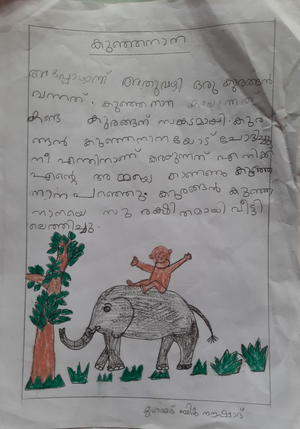 കുഞ്ഞനാന
അപ്പോഴാണ് അതുവഴി ഒരു കുരങ്ങൻ
വന്നത്. കുഞ്ഞനാന കരയുന്നത്
കണ്ട കുരങ്ങന് സങ്കടമായി. കുര
ങ്ങൻ കുഞ്ഞനാനയോട് ചോദിച്ചു
നീ എന്തിനാണ് കരയുന്നത് എനിക്ക്
എന്റെ അമ്മയെ കാണണം കുഞ്ഞ
നാന പറഞ്ഞു. കുരങ്ങൻ കുഞ്ഞ
നാനയെ സുരക്ഷിതമായി വീട്ടി
ലെത്തിച്ചു.
മുഹമ്മദ് ബിൻ നൗഷാദ്